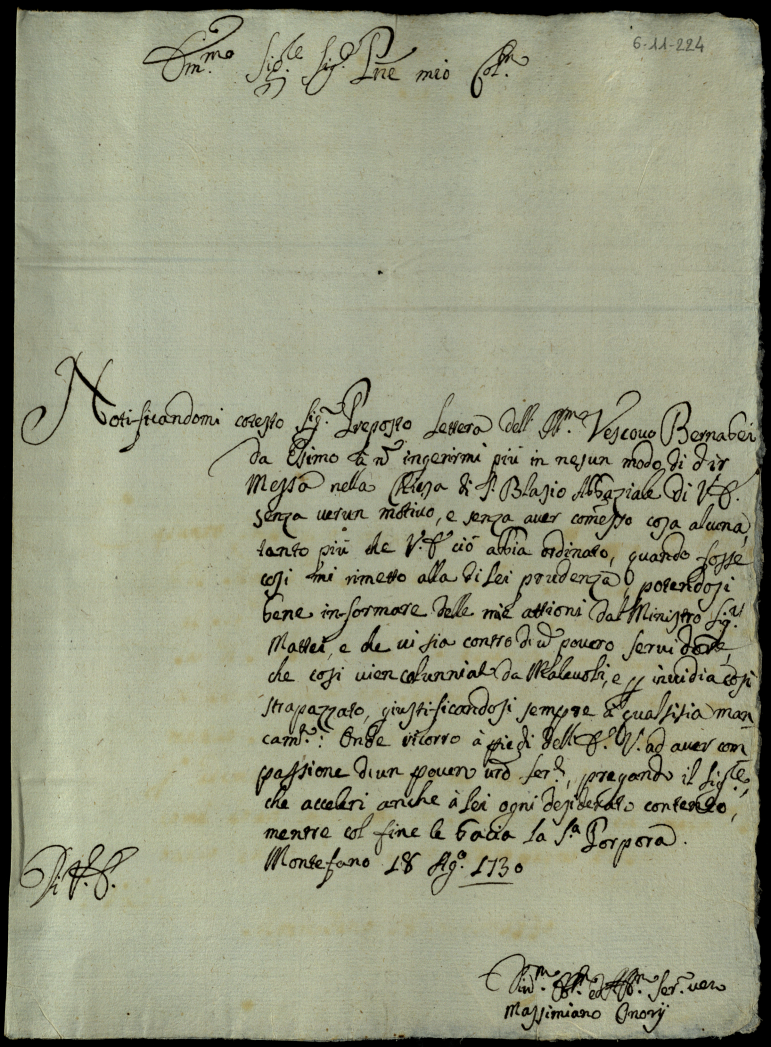 6-11-224
Em.mo Sig.re Sig.r P.rne mio Col.mo
Notificandomi cotesto Sig.r Preposto Lettera dell' Ill.mo Vescouo Bernabei
da Osimo à nõ ingerirmi più in nesun modo di dir
Messa nella Chiesa di S. Blasio Abbaziale di V. E.
senza uerun motiuo, e senza auer comesso cosa alcuna,
tanto più che V. E. ciò abbia ordinato, quando fosse
cosi mi rimetto alla di Lei prudenza, potendosi
bene informare delle mie attioni dal Ministro Sig.r
Mattei, e che ui sia contro di un pouero seruidore,
che cosi uien calunniato da Maleuoli, e per inuidia cosi
strapazzato, giustificandosi sempre à qualsisia man
cam.to: Onde ricorro à piedi dell' E. V. ad auer com
passione di un pouero uro ser.e, pregando il Sig.re,
che acceleri anche à Lei ogni desiderato contento,
mentre col fine le bacia la S.a Porpora.
Montefano 18 Ag.o 1730
Di V. E.
Um.mo ed Obb.mo Ser.e uero
Massimiano Onorij